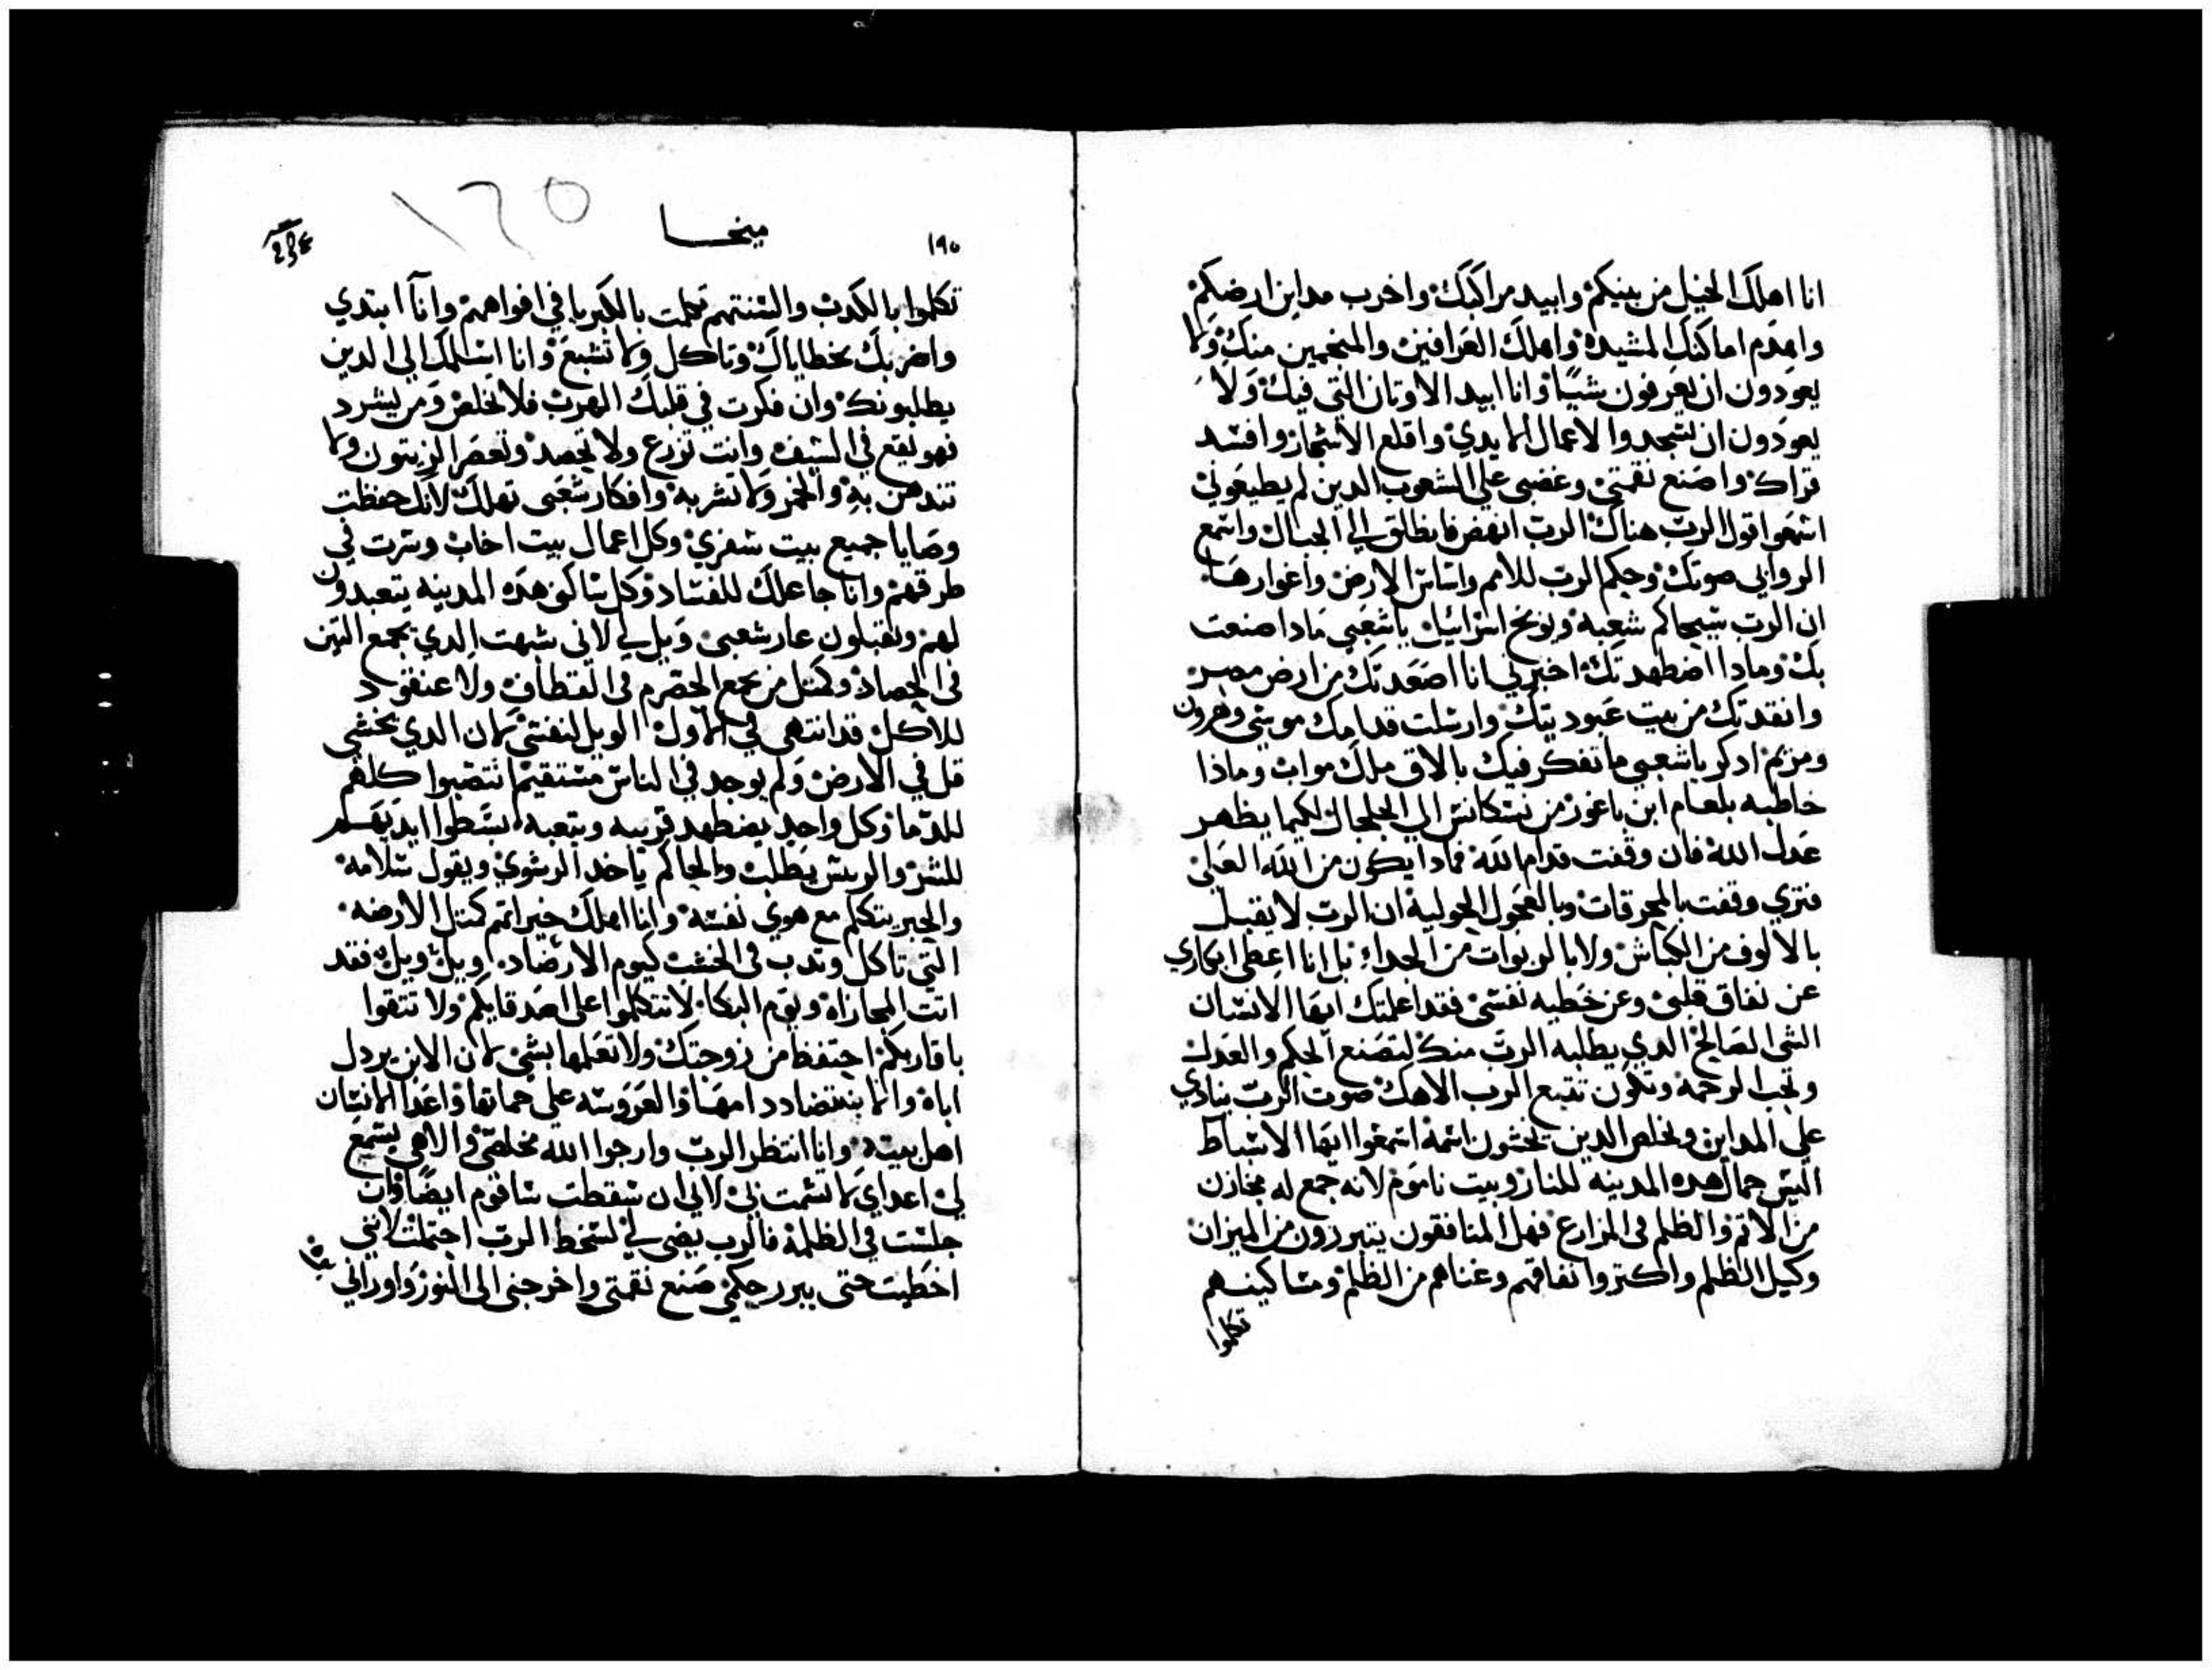 انا اهلك الخيل من بينكم وابيد مراكبك واخرب مداين ارضكم
واهدم اماكنك المشيده واهلك العرافين والمنجمين منك ولا
يعودون ان يعرفون شيا وانا ابيد الاوتان التي فيك ولا
يعودون ان يسجدوا لاعمال الايدي واقلع الاشجار وافسد
قراك واصنع نقمتي وغضبي علي الشعوب الدين لم يطيعوني
اسمعوا قول الرب هناك الرب انهض فانطلق الي الجبال واسمع
الروابي صوتك وحكم الرب للامم واساس الارض واغوارها
ان الرب سيحاكم شعبه ويوبخ اسراييل ياشعبي مادا صنعت
بك ومادا اضطهدتك اخبرني انا اصعدتك من ارض مصر
وانقدتك من بيت عبوديتك وارسلت قدامك موسي وهرون
ومريم ادكر ياشعبي ما تفكر فيك بالاق ملك مواب وماذا
خاطبه بلعام ابن باعور من الي الجلجال لكيما يظهر
عدل الله فان وقفت قدام الله فمادا يكون من الله العلي
فتري وقفت بالمحرقات وبالعجول الحوليه ان الرب لا يقبل
بالالوف من الكباش ولا بالربوات من الجداء بل انا اعطي ابكاري
عن نفاق قلبي وعن خطيه نفسي فقد اعلمتك ايها الانسان
الشي الصالح الدي يطلبه الرب منك لتصنع الحكم والعدل
وتحب الرحمه وتكون تتبع الرب الاهك صوت الرب ينادي
علي المداين ويخلص الدين يخشون اسمه اسمعوا ايها الاسباط
اليس جمال هده المدينه للنار وبيت ناموم لانه جمع له مخازن
من الاتم والظلم في المزارع فهل المنافقون يتبررون من الميزان
وكيل الظلم واكتروا نفاقهم وغناهم من الظلم ومساكينهم
تكلموا
ميخا
١٩٥
١٦٥
تكلموا بالكدب والسنتهم تكلمت بالكبريا في افواههم وانا ابتدي
واضربك بخطاياك وتاكل ولا تشبع وانا اسلمك الي الدين
يطلبونك وان فكرت في قلبك الهرب فلا تخلص ومن يشرد
فهو يقع في السيف وانت تزرع ولا تحصد وتعصر الزيتون ولا
تندهن به والخمر ولا تشربه وافكار شعبي تهلك لانك حفظت
وصايا جميع بيت شعري وكل اعمال بيت اخاب وسرت في
طرقهم وانا جاعلك للفساد وكل ساكني هده المدينه يتعبدون
لهم وتقبلون عار شعبي ويل لي لاني شبهت الدي يجمع التبن
في الحصاد وكمتل من يجمع الحصرم في القطاف ولا عنقود
للاكل قد انتهي في الاول الويل لنفسي لان الدي يخشي
قل في الارض ولم يوجد في الناس مستقيم انتصبوا كلهم
للدما وكل واحد يضطهد قريبه ويتعبه بسطوا ايديهم
للشر والريس يطلب والحاكم ياخد الرشوي ويقول سلامه
والحبر يتكلم مع هوي نفسه وانا اهلك خيراتهم كمتل الارضه
التي تاكل وتدب في الخشب كيوم الارصاد ويل ويل فقد
اتت المجازاه ويوم البكا لا تتكلموا علي اصدقايكم ولا تتقوا
باقاربكم احتفظ من زوجتك ولا تعلمها بشي لان الابن يردل
اباه والابنه تضادد امها والعروسه علي حماتها واعدا الانسان
اهل بيته وانا انتظر الرب وارجوا الله مخلصي والاهي يسمع
لي اعداي لا تشمت بي لاني ان سقطت ساقوم ايضا وان
جلست في الظلمه فالرب يضي لي لسخط الرب احتملت لانني
اخطيت حتي يبرر حكمي صنع نقمتي واخرجني الي النور واوراني